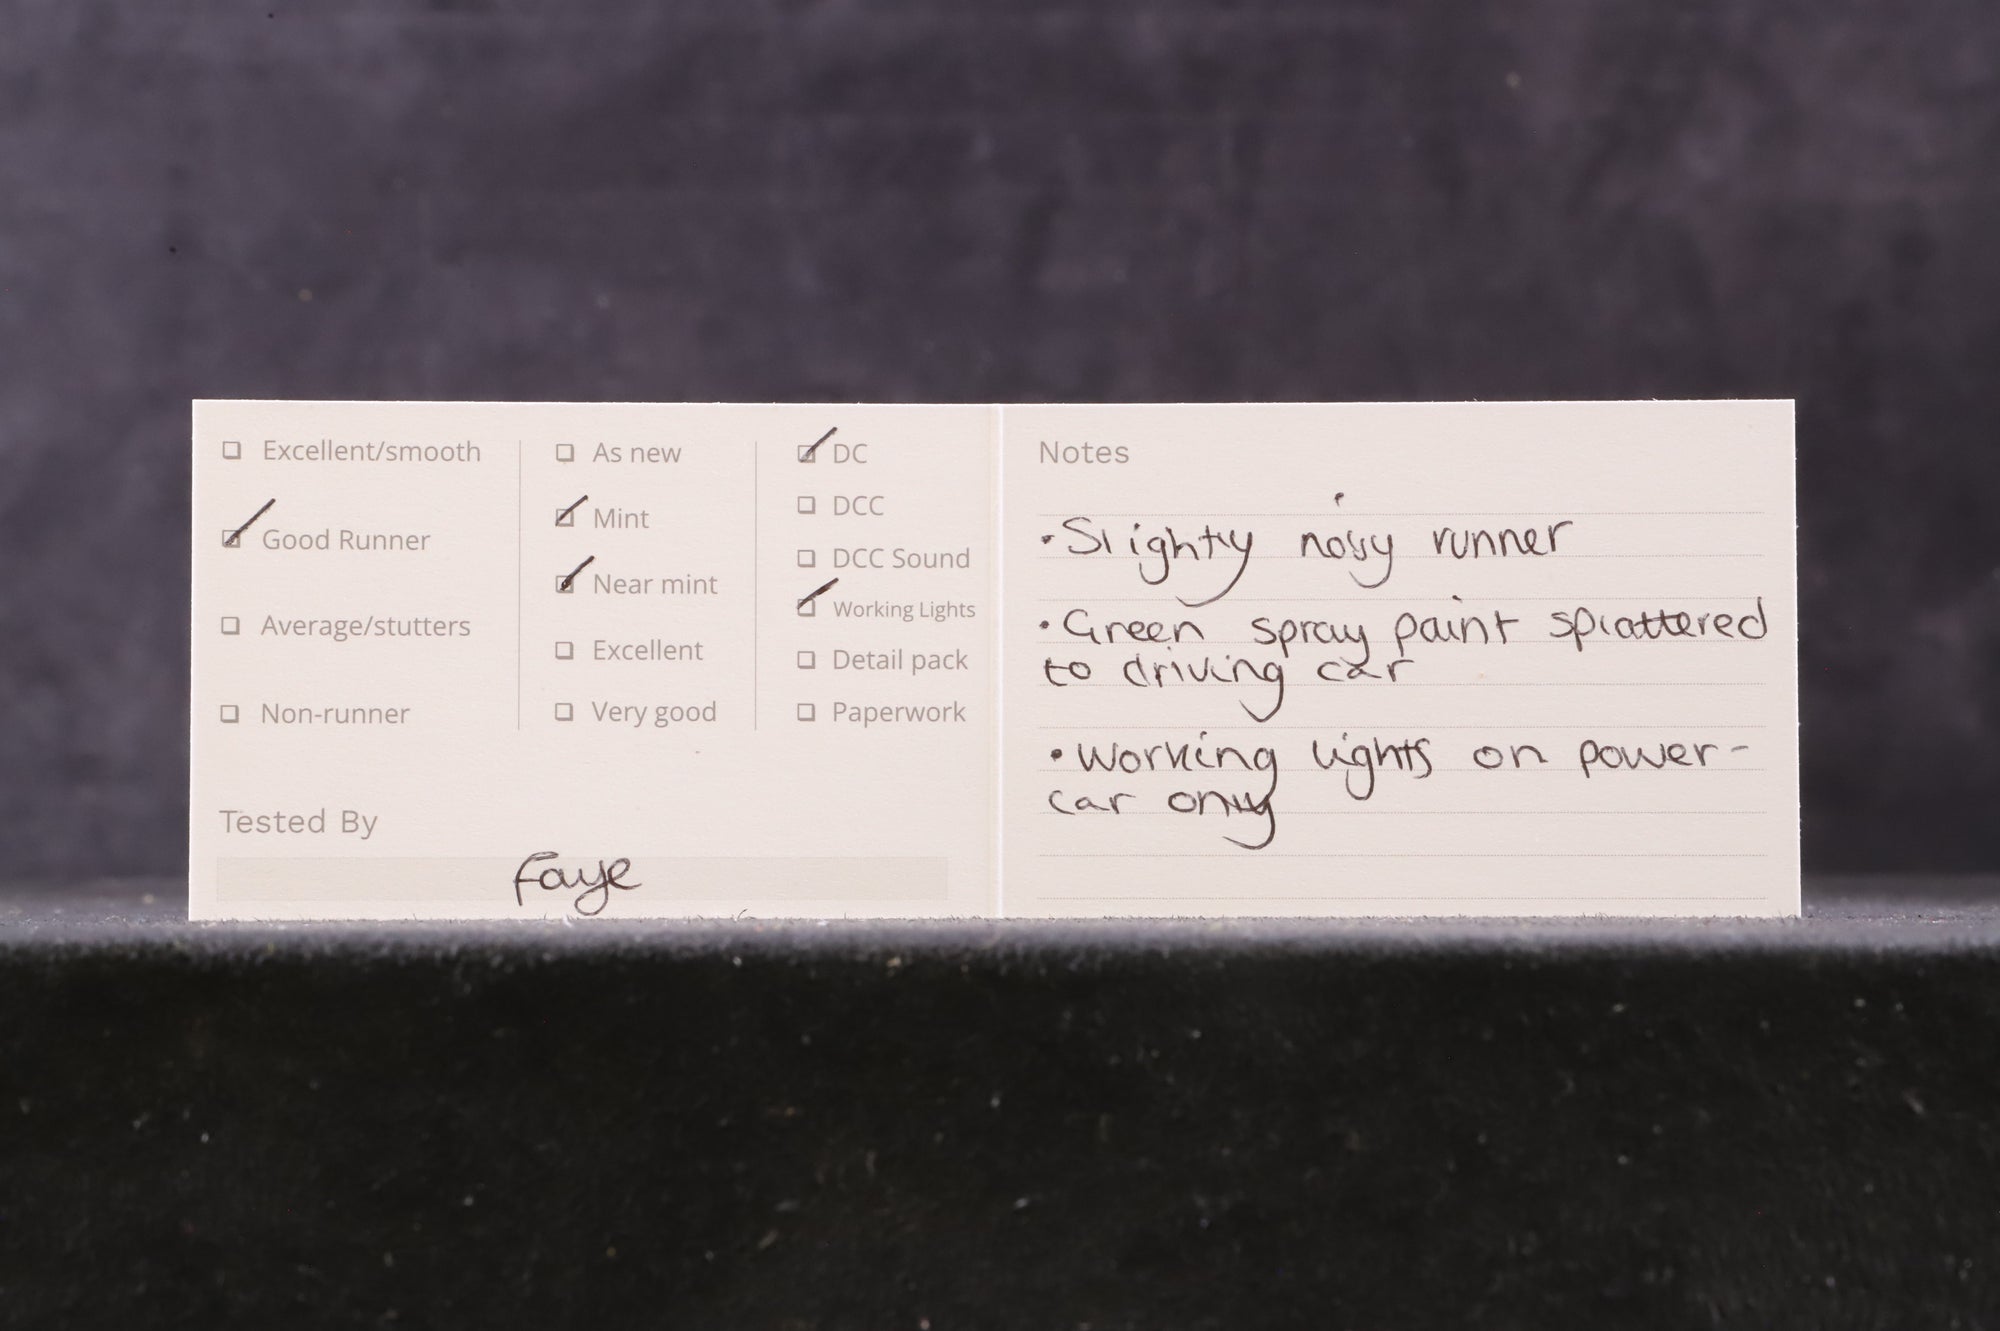 Excellent/smooth
Good Runner
Average/stutters
Non-runner
As new
Mint
Near mint
Excellent
Very good
DC
DCC
DCC Sound
Working Lights
Detail pack
Paperwork
Tested By
Faye
Notes
• Slighty noisy runner
• Green spray paint splattered
to driving car
• Working lights on power-
car only